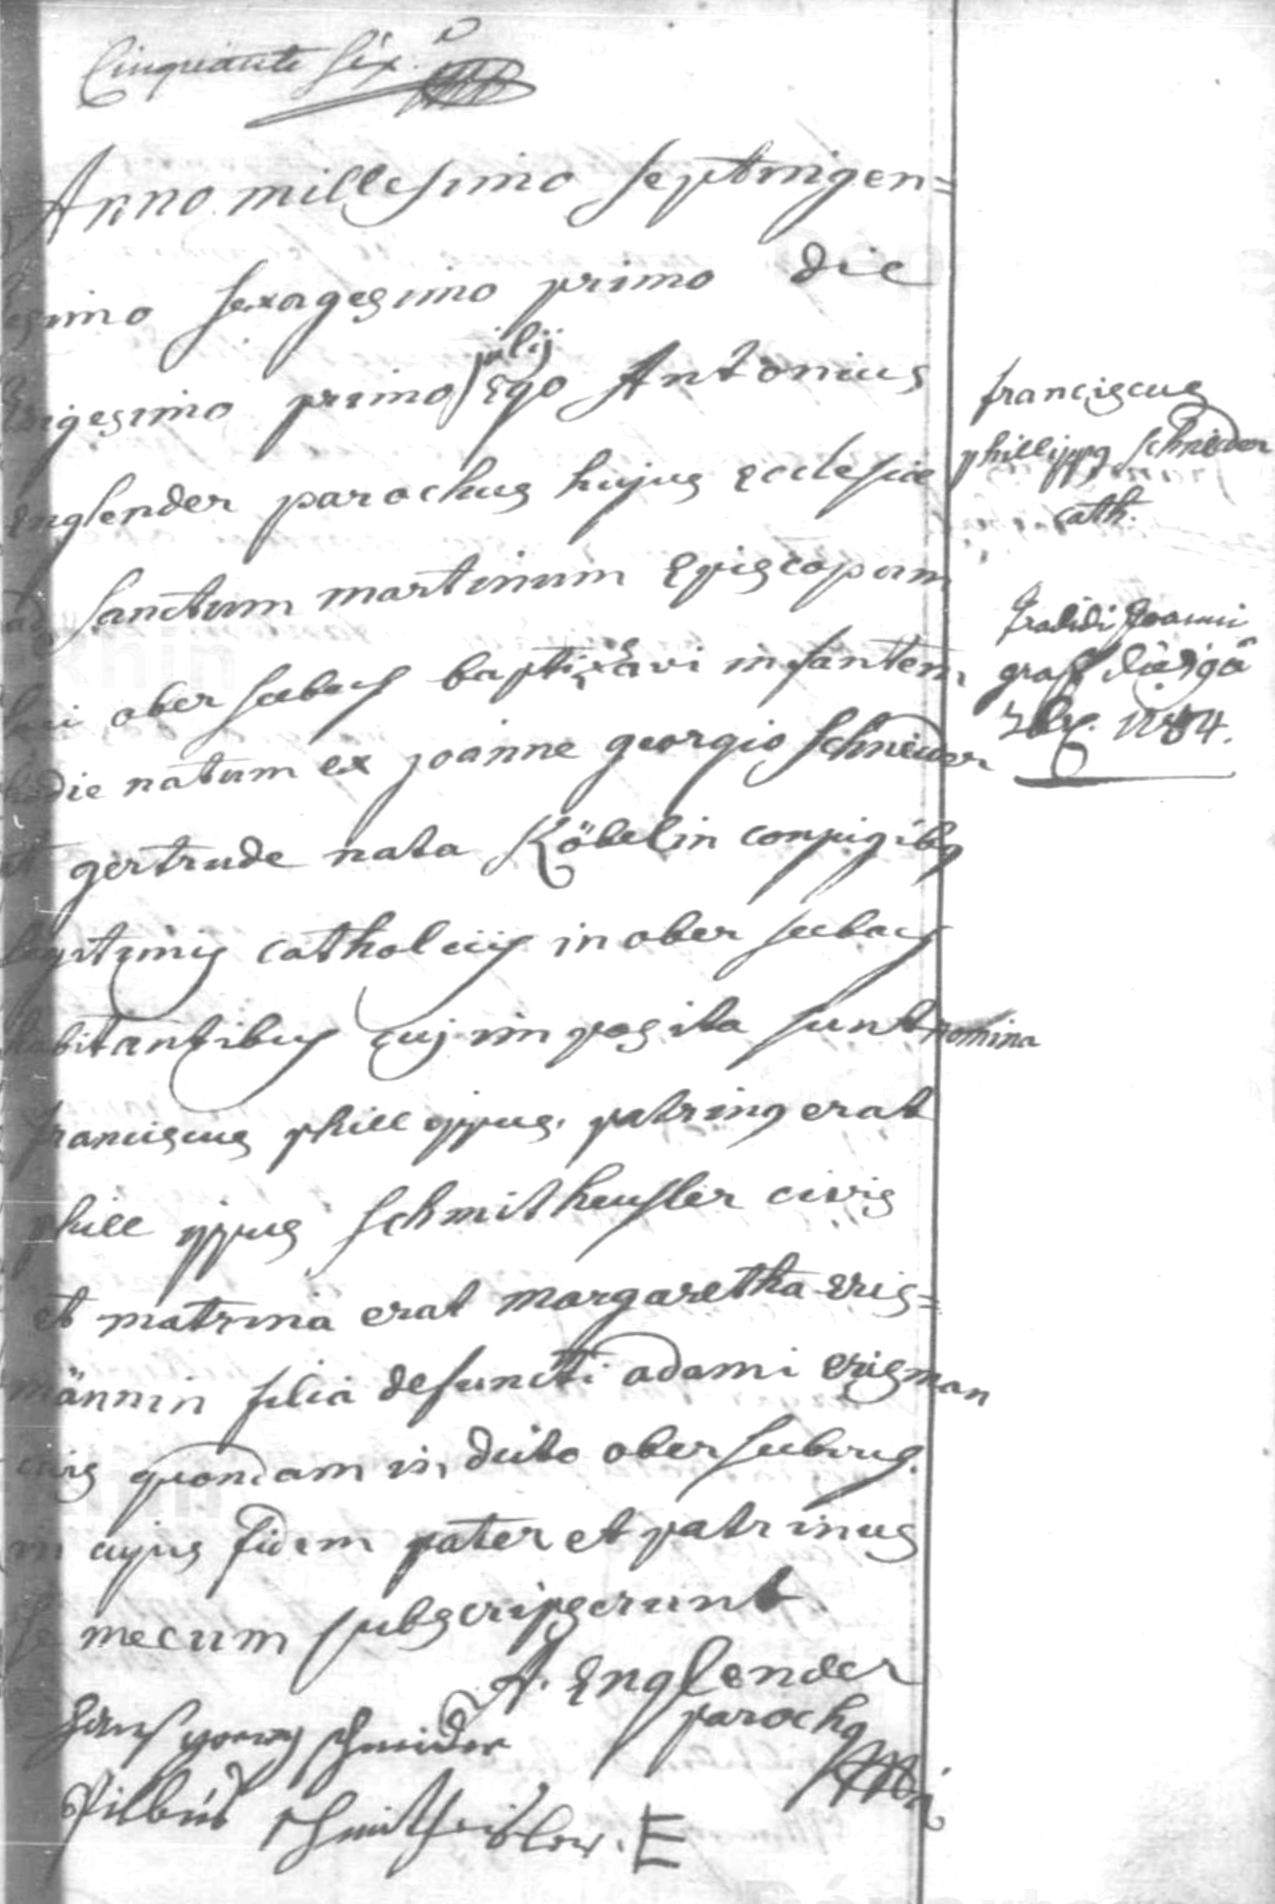 Cinquante six
Anno millesimo septingen=
esimo sexagesimo primo die
vigesimo primo julij Ego Antonius
Englender parochus hujus Ecclesiæ
ad Sanctum martinum Episcopum
ober seebach baptizavi infantem
hodie natum ex joanne georgio schneider
et gertrude nata Köbelin conjugibus
legitimis catholicis in ober seebach
habitantibus cui imposita sunt nomina
franciscus phillippus. patrinus erat
phillippus schmitheusler civis
et matrina erat margaretha erig=
männin filia defuncti adami erigman
civis quondam in dicto ober seebach.
in cujus fidem pater et patrinus
se mecum subscripserunt.
A. Englender
parochus
Hans yoerg schneider
Pilbus schmitheisler. E
franciscus
phillippus schneider
cath.
Tradidi Joanni
graff
7bris. 1784.